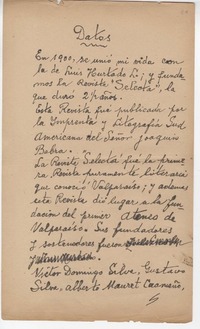 Datos
En 1900, se unió mi vida con
la de Luis Hurtado L.; y funda-
mos la Revista "Selecta", la
que duró 2 años.
Esta Revista fué publicada por
la Imprenta y Litografía Sud
Americana del Señor Joaquin
Babra.
La Revista "Selecta" fué la prime-
ra Revista puramente literaria
que conoció Valparaíso; y además
esta Revista dió lugar a la fun-
dación del primer Ateneo de
Valparaíso. Sus fundadores
y sostenedores fueron
Víctor Domingo Silva, Gustavo
Silva, Alberto Mauret Caamaño,